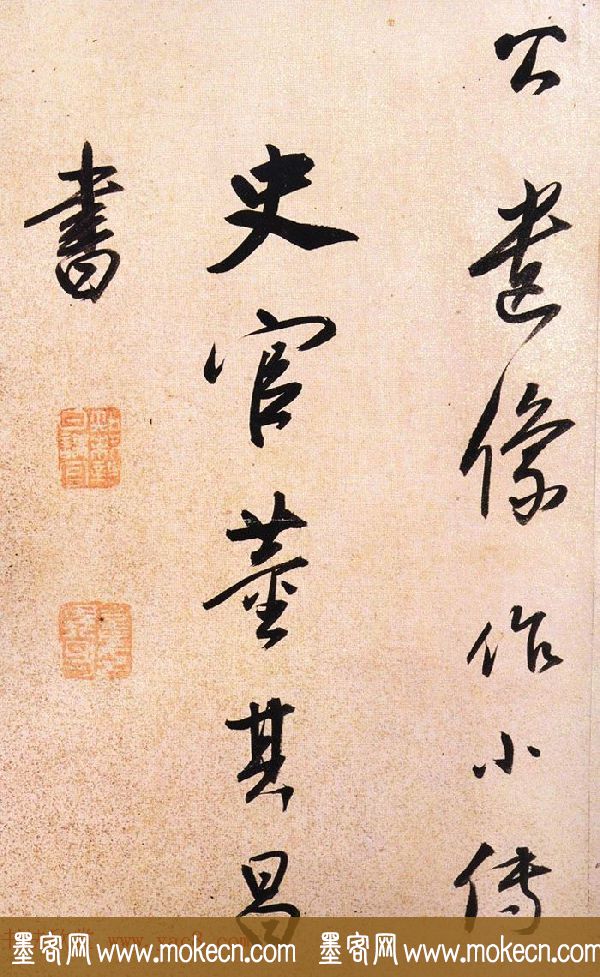 公遺像作小傳
史官董其昌
書
墨客网 www.mokecn.com 墨客网 www.mokecn.com